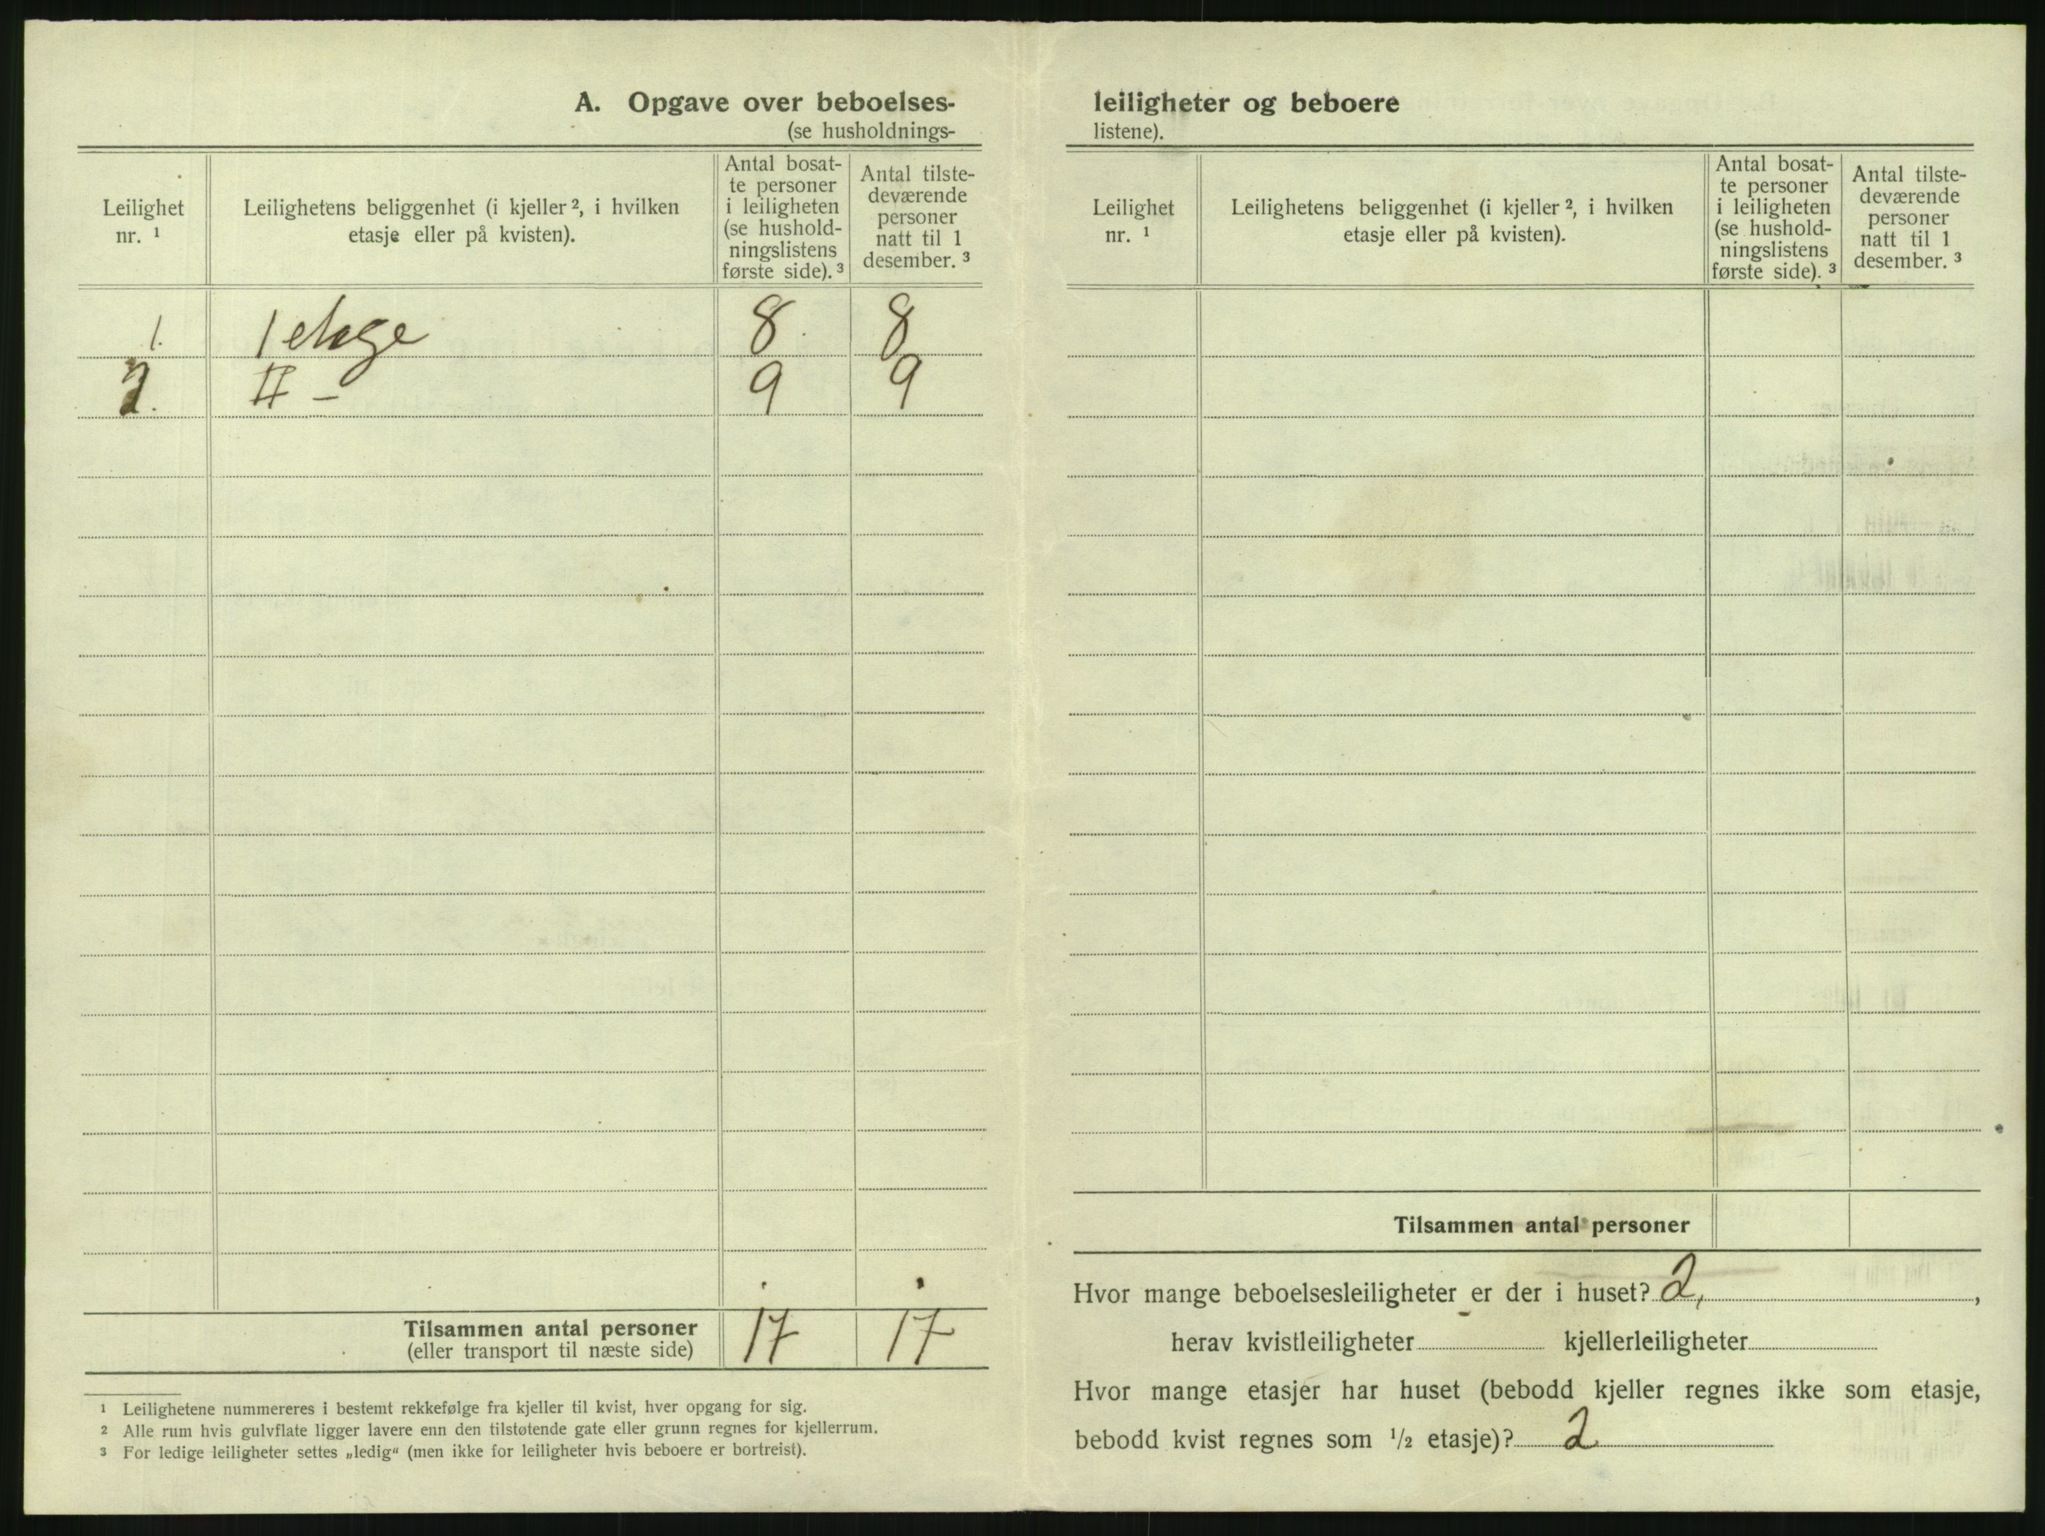 A. Opgave over beboelses-
(se husholdnings-
Leilighet nr. ¹
Leilighetens beliggenhet (i kjeller ², i hvilken etasje eller på kvisten).
Antal bosat-
te personer
i leiligheten
(se hushold-
ningslistens
første side). ³
Antal tilste-
deværende
personer
natt til 1
desember. ³
1. 1 etage 8. 8
2. II – 9 9
Tilsammen antal personer 17 17
(eller transport til næste side)
¹ Leilighetene nummereres i bestemt rekkefølge fra kjeller til kvist, hver opgang for sig.
² Alle rum hvis gulvflate ligger lavere enn den tilstøtende gate eller grunn regnes for kjellerrum.
³ For ledige leiligheter settes „ledig“ (men ikke for leiligheter hvis beboere er bortreist).
leiligheter og beboere
listene).
Leilighet nr. ¹
Leilighetens beliggenhet (i kjeller ², i hvilken etasje eller på kvisten).
Antal bosat-
te personer
i leiligheten
(se hushold-
ningslistens
første side). ³
Antal tilste-
deværende
personer
natt til 1
desember. ³
Tilsammen antal personer
Hvor mange beboelsesleiligheter er der i huset? 2,,
herav kvistleiligheter kjellerleiligheter
Hvor mange etasjer har huset (bebodd kjeller regnes ikke som etasje,
bebodd kvist regnes som ½ etasje)? 2